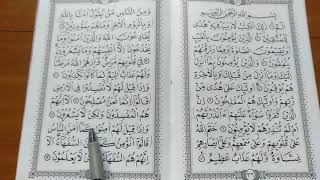 بسم الله الرحمن الرحيم
الم ذلك الكتاب لا ريب فيه هدى
للمتقين الذين يؤمنون بالغيب
ويقيمون الصلوة ومما رزقناهم
ينفقون والذين يؤمنون بما
أنزل إليك وما أنزل من قبلك وبالآخرة
هم يوقنون أولئك على هدى من ربهم
وأولئك هم المفلحون إن الذين
كفروا سواء عليهم ءأنذرتهم
أم لم تنذرهم لا يؤمنون ختم الله
على قلوبهم وعلى سمعهم وعلى أبصارهم
غشاوة ولهم عذاب عظيم
ومن الناس من يقول آمنا بالله
وباليوم الآخر وما هم بمؤمنين
يخادعون الله والذين آمنوا وما
يخدعون إلا أنفسهم وما يشعرون
في قلوبهم مرض فزادهم الله مرضا
ولهم عذاب أليم بما كانوا يكذبون
وإذا قيل لهم لا تفسدوا في الأرض
قالوا إنما نحن مصلحون ألا إنهم
هم المفسدون ولكن لا يشعرون
وإذا قيل لهم آمنوا كما آمن الناس
قالوا أنؤمن كما آمن السفهاء ألا
إنهم هم السفهاء ولكن لا يعلمون